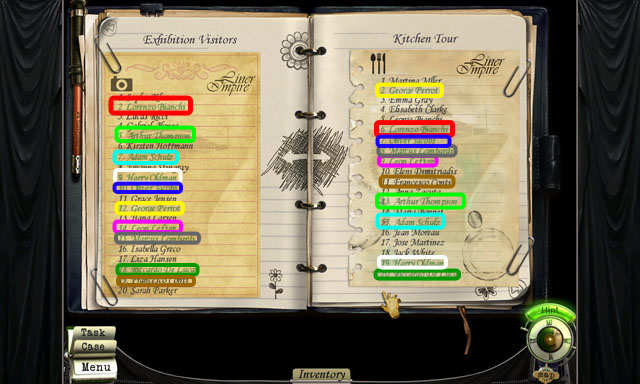 Exhibition Visitors
Liner Empire
2. Lorenzo Bianchi
3. Lucas Ricci
5. Arthur Thompson
6. Kirsten Hoffmann
7. Adam Schulz
9. Harry Oldman
11. Grace Jensen
12. George Perrot
13. Hana Larsen
14. Leon Leftan
16. Isabella Greco
17. Liza Hansen
18. Riccardo De Luca
19. Francesco Conti
20. Sarah Parker
Kitchen Tour
Liner Empire
1. Martina
2. George Perrot
3. Emma Gray
4. Elisabeth Clarke
6. Lorenzo Bianchi
9. Leon Leftan
10. Eleni Dimitriadis
11. Francesco Conti
13. Arthur Thompson
15. Adam Schulz
16. Jean Moreau
17. Jose Martinez
18. Jack White
19. Harry Oldman
20. Riccardo De Luca
Task
Case
Menu
Inventory
Hint
map